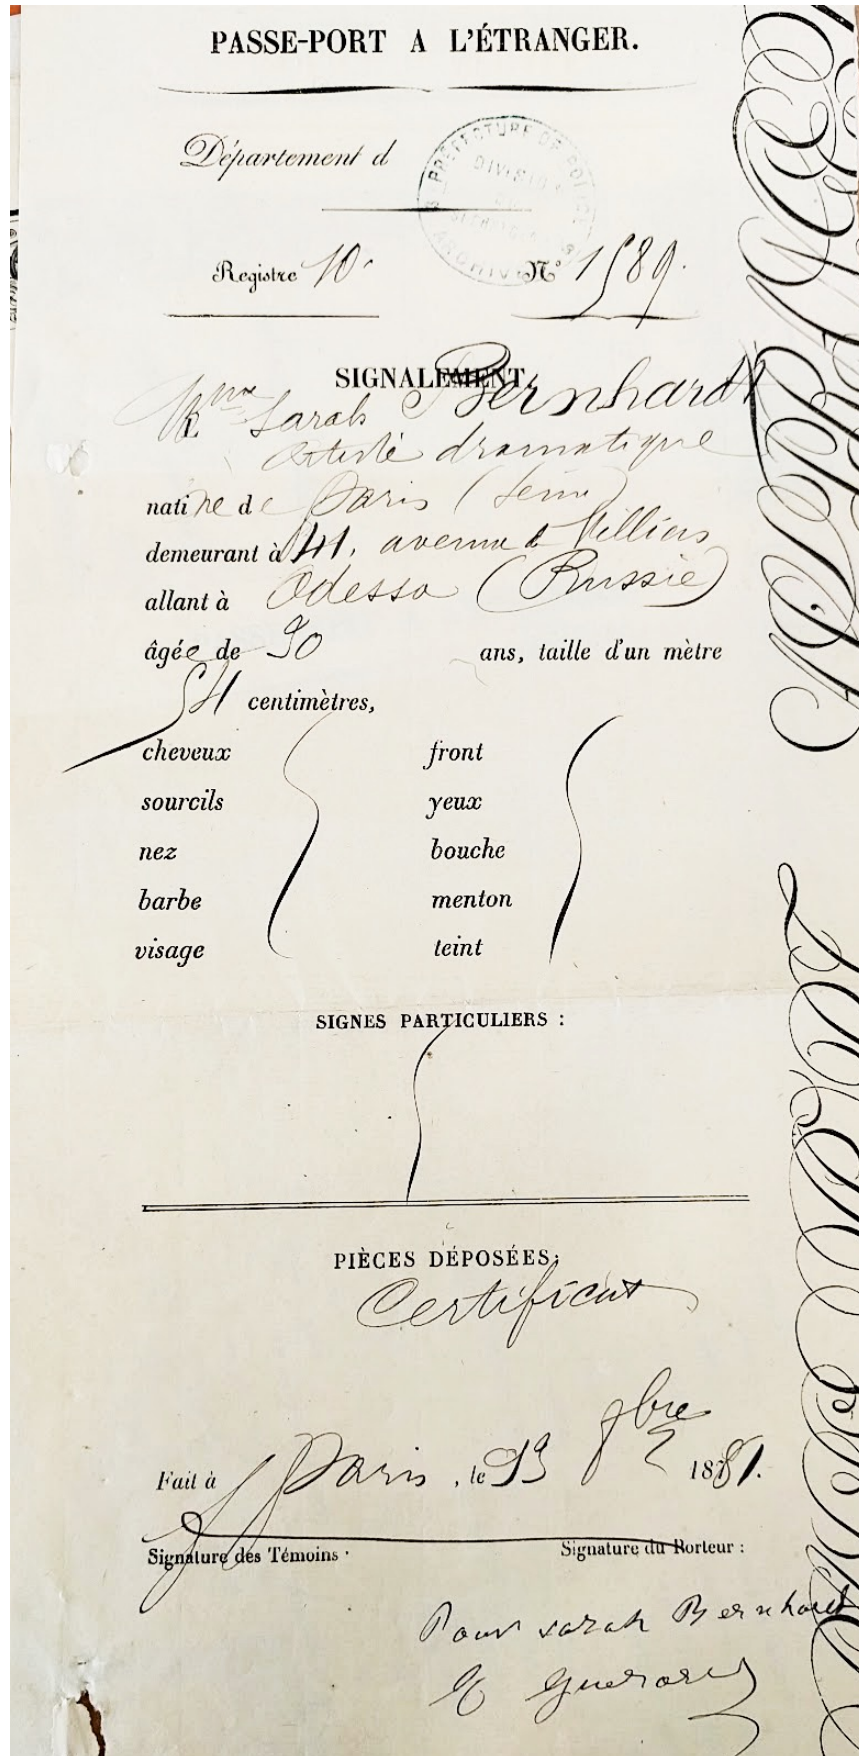 PASSE-PORT A L'ÉTRANGER.
Département d
PRÉFECTURE DE POLICE
DIVISION
ARCHIVES
Registre 10. N° 1589.
SIGNALEMENT.
Mme Sarah Bernhardt
Artiste dramatique
native de Paris (Seine)
demeurant à 41, avenue de Villiers
allant à Odessa (Russie)
âgée de 30 ans, taille d'un mètre
54 centimètres,
cheveux front
sourcils yeux
nez bouche
barbe menton
visage teint
SIGNES PARTICULIERS :
PIÈCES DÉPOSÉES:
Certificat
Fait à Paris, le 1881.
Signature des Témoins : Signature du Porteur :
Pour Sarah Bernhardt
Guerard